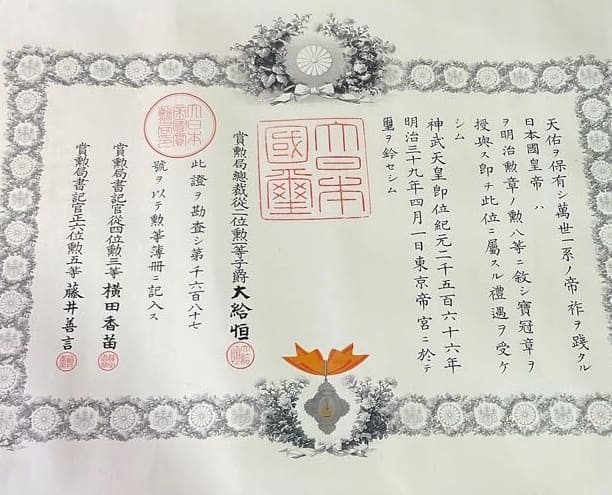 天佑ヲ保有シ萬世一系ノ帝祚ヲ踐タル
日本國皇帝ハ
ヲ明治勲章ノ勲八等ニ敘シ寶冠章ヲ
授與ス即チ此位ニ屬スル禮遇ヲ受ケ
シム
神武天皇即位紀元二千五百六十六年
明治三十九年四月一日東京帝宮ニ於テ
璽ヲ鈐セシム
大日本
國璽
賞勲局總裁從二位勲一等子爵大給恒
此證ヲ勘査シ第千六百八七
號ヲ以テ勲等簿冊ニ記入ス
賞勲局書記官從四位勲三等橫田香苗
賞勲局書記官正六位勲五等藤井善言